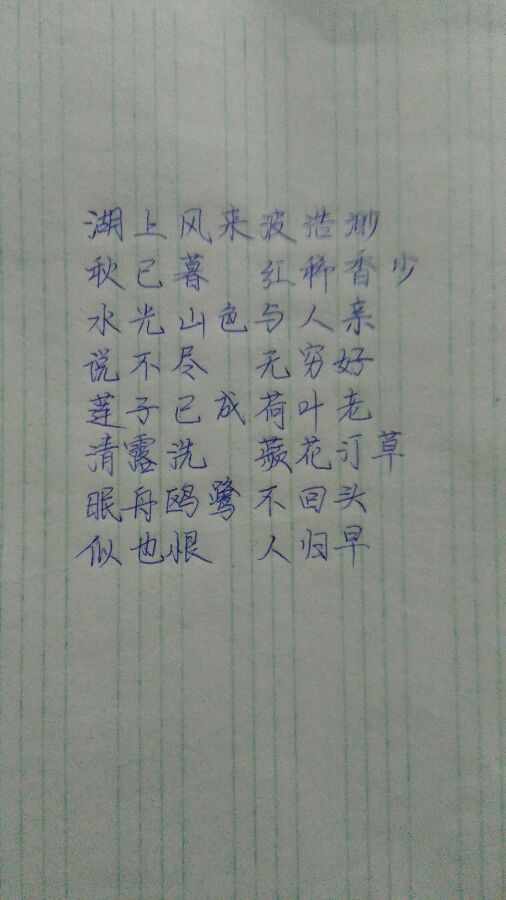 湖上风来波浩渺
秋已暮 红稀香少
水光山色与人亲
说不尽 无穷好
莲子已成荷叶老
清露洗 蘋花汀草
眠舟鸥鹭不回头
似也恨 人归早